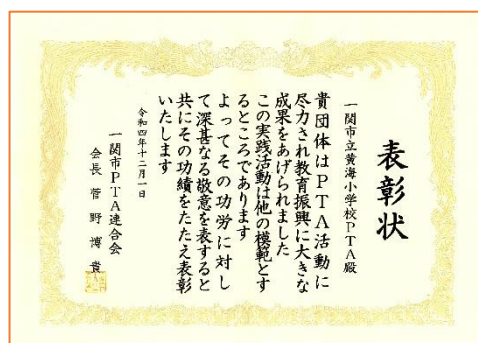 表彰状
一関市立黄海小学校PTA殿
貴団体はPTA活動に
尽力され教育振興に大きな
成果をあげられました
この実践活動は他の模範とす
るところであります
よってその功労に対し
て深甚なる敬意を表すると
共にその功績をたたえ表彰
いたします
令和四年十二月一日
一関市PTA連合会
会長 菅野博貴